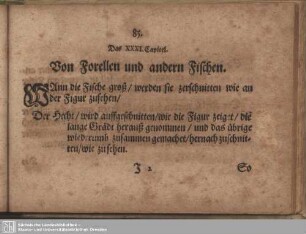 85.
Das XXXI. Capitel.
Von Forellen und andern Fischen.
WAnn die Fische groß/ werden sie zerschnitten wie an
der Figur zusehen/
Der Hecht/ wird auffgeschnitten/ wie die Figur zeiget/ die
lange Grädt herauß genommen/ und das übrige
widerumb zusammen gemachet/ hernach zuschnit-
ten/ wie zusehen.
J 2 So